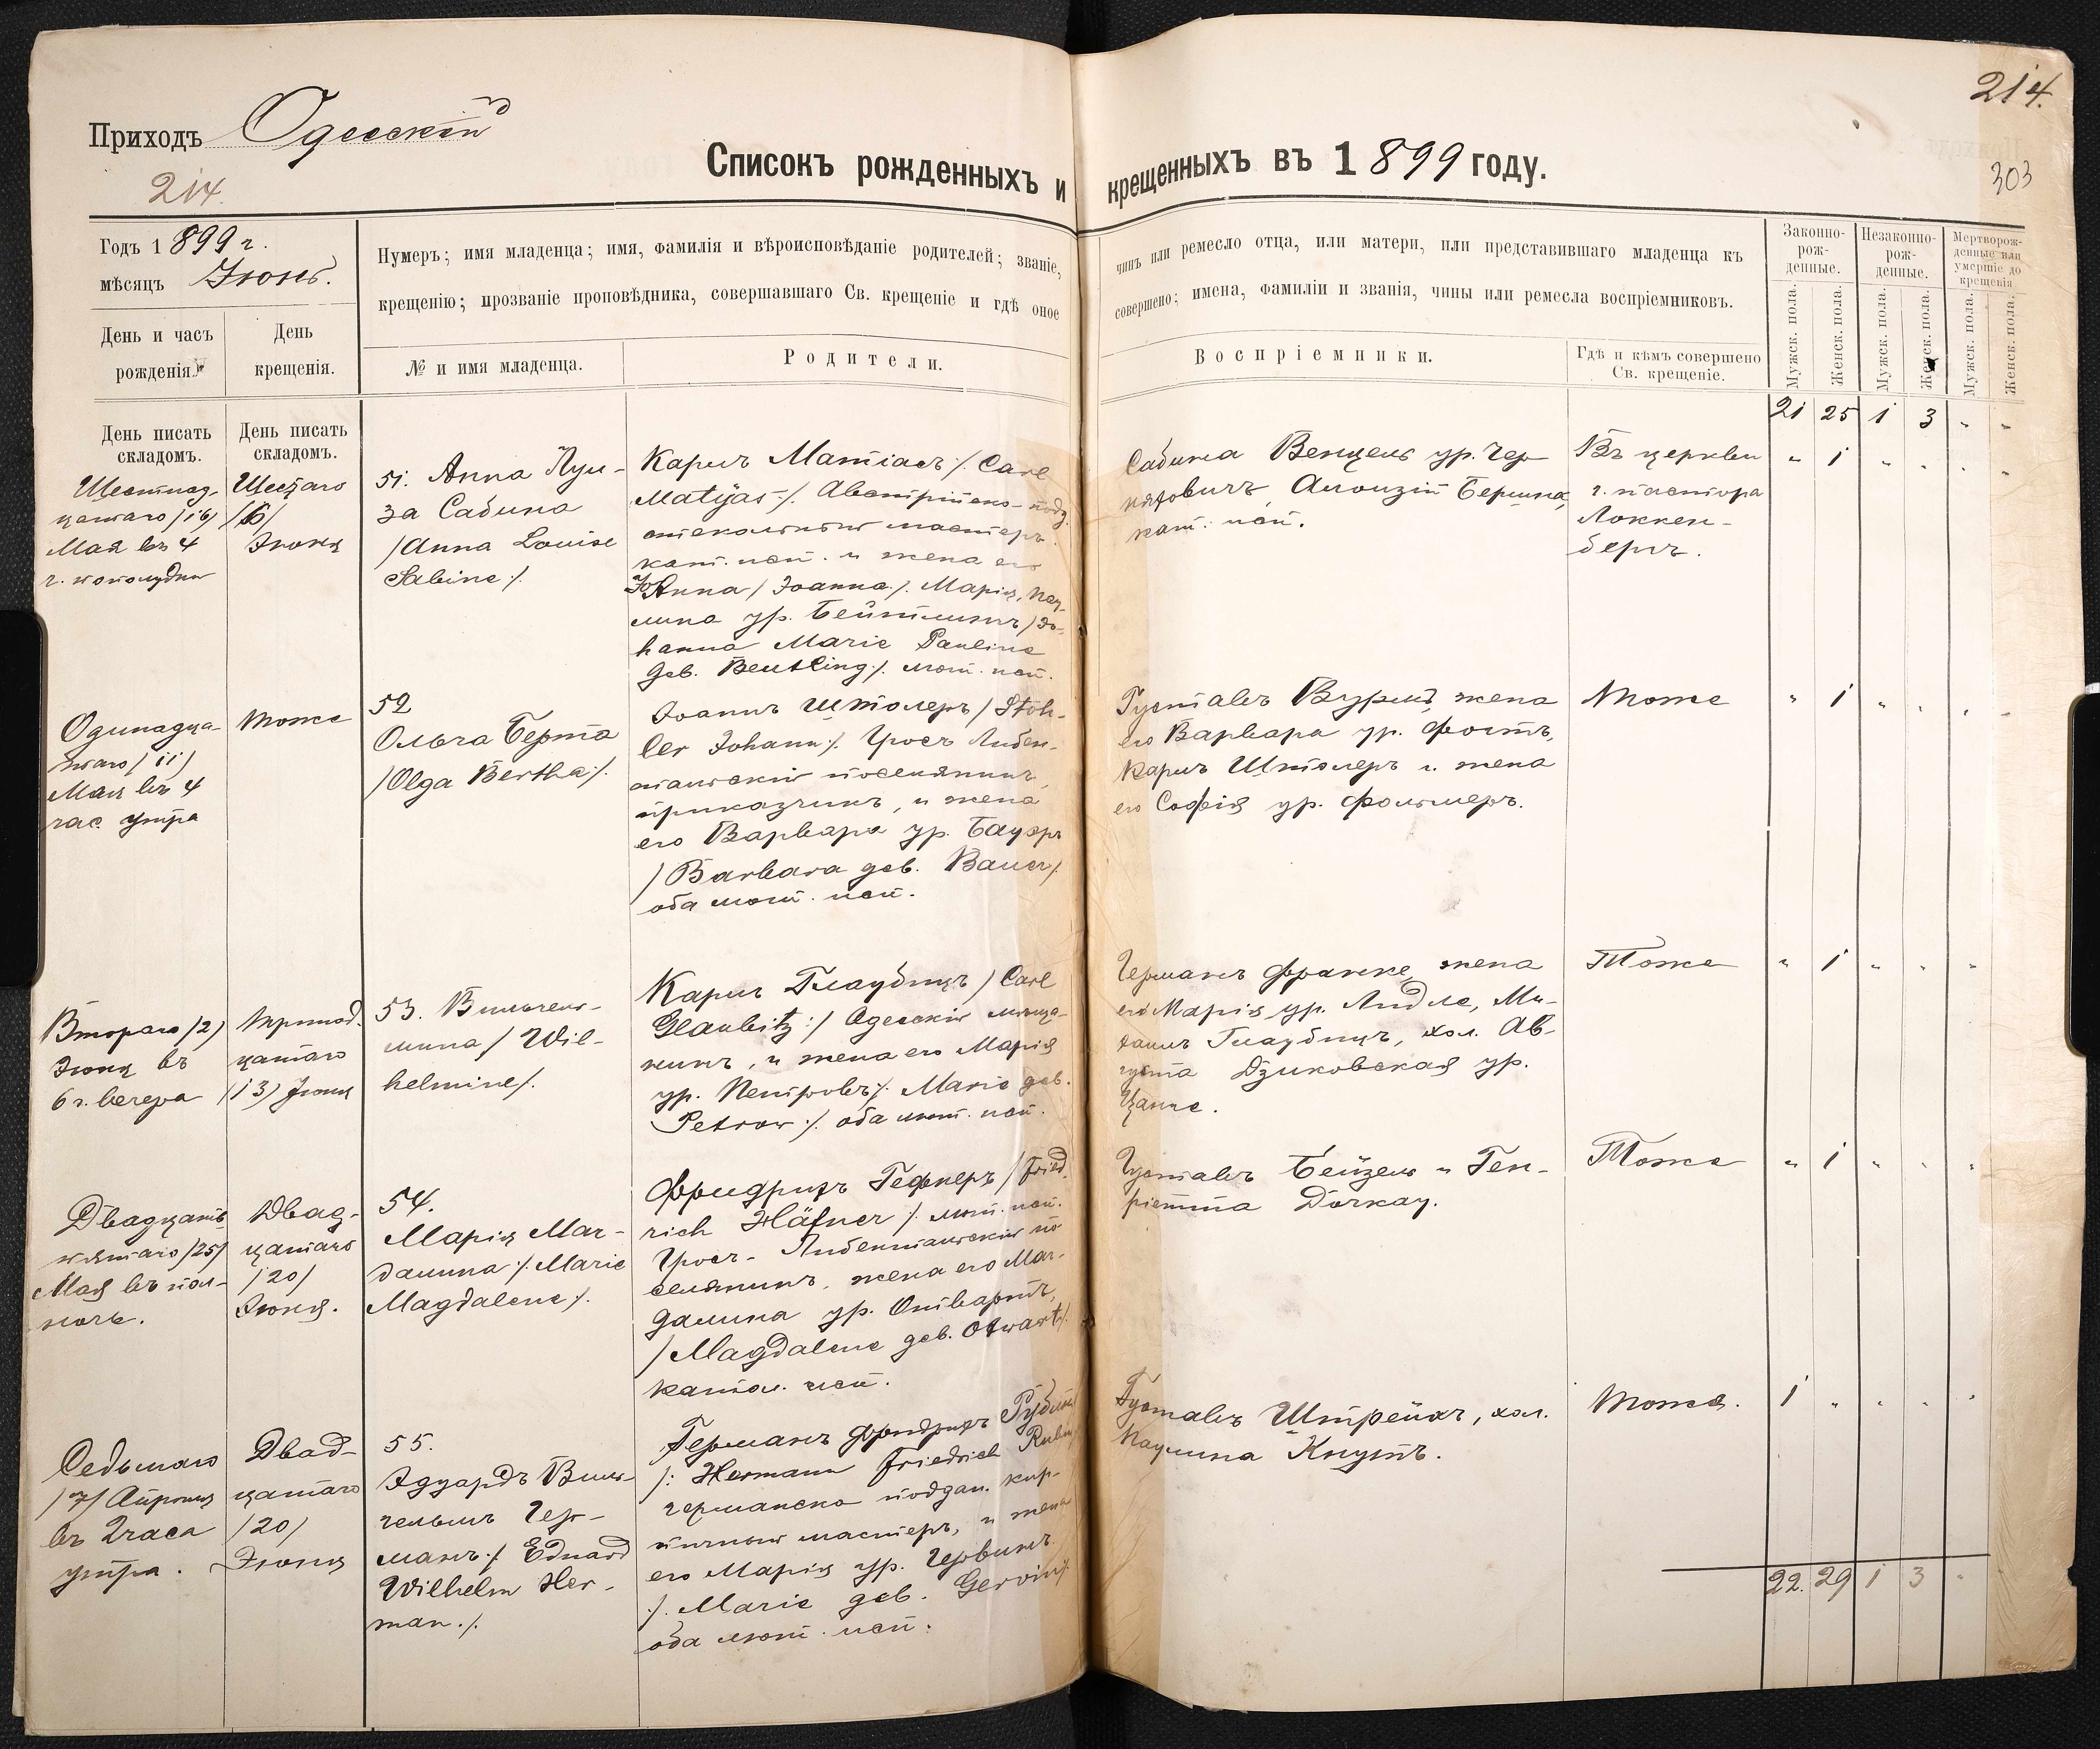 214.
Приходъ Одесскій
214.
303
Списокъ рожденныхъ и крещенныхъ въ 1899 году.
Годъ 1899 г.
мѣсяцъ Іюнь.
Нумеръ; имя младенца; имя, фамилія и вѣроисповѣданіе родителей; званіе, чинъ или ремесло отца, или матери, или представившаго младенца къ
крещенію; прозваніе проповѣдника, совершавшаго Св. крещеніе и гдѣ оное совершено; имена, фамиліи и званія, чины или ремесла воспріемниковъ.
День и часъ
рожденія.
День
крещенія.
№ и имя младенца.
Родители.
Воспріемники.
Гдѣ и кѣмъ совершено
Св. крещеніе.
Законно-
рож-
денные.
Незаконно-
рож-
денные.
Мертворож-
денные или
умершіе до
крещенія
Мужск. пола.
Женск. пола.
Мужск. пола.
Женск. пола.
Мужск. пола.
Женск. пола.
День писать
складомъ.
День писать
складомъ.
21 25 1 3 " "
Шестнад-
цатаго /16/
Мая въ 4
ч. пополудни
Шестаго
/6/
Іюня
51. Анна Луи-
за Сабина
/Anna Louise
Sabine/.
Карлъ Матіасъ /. Carl
Matijas /. Австрійско-подд.
стекольный мастеръ
кат. исп. и жена его
Іоанна /. Марія, Пау-
лина ур. Бейтлингъ /Jo-
hanna Marie Pauline
geb. Beutling /. лют. исп.
Сабина Венцель ур. Чер-
Алоизій
кат. исп.
Въ церкви
г. пастора
Локкен-
бергъ.
" 1 " " " "
Одинадца-
таго /11/
Мая въ 4
час. утра
Тоже
52
Ольга Берта
/Olga Bertha/.
Іоаннъ Штолеръ /Stöh-
ler Johann /. Гросъ Либен-
тальскій поселянинъ
прикащикъ, и жена
его Варвара ур. Бауэръ
/Barbara geb. Bauer/.
оба лют. исп.
Густавъ Вурстъ, жена
его Варвара ур. Фостъ,
Карлъ Штолеръ и жена
его Софія ур. Фольмеръ.
Тоже
" 1 " " " "
Второго /2/
Іюня въ
6 ч. вечера
Тринад-
цатаго
/13/ Іюня
53. Вильгель-
мина /Wil-
helmine/.
Карлъ Глаубицъ /Carl
Glaubitz:/ Одесскій мѣща-
нинъ, и жена его Марія
ур. Петровъ /. Marie geb.
Petrow /. оба лют. исп.
Германъ Франке, жена
его Марія ур. Лидле, Ми-
хаилъ Глаубицъ, хол. Ав-
густа Дзиковская ур.
Цанге.
Тоже
" 1 " " "
Двадцать
пятаго /25/
Мая въ пол-
ночь.
Двад-
цатаго
/20/
Іюня.
54.
Марія Маг-
далина /. Marie
Magdalene /.
Фридрихъ Гефнеръ /Fried-
rich Häfner /. лют. исп.
Гросъ-Либентальскій по-
селянинъ, жена его Маг-
далина ур. Отвартъ,
/Magdalene geb. Otwart/.
катол. исп.
Густавъ Бейзель и Ген-
ріетта Доркау.
Тоже
" 1 " " "
Седьмаго
/7/ Апрѣля
въ 2 часа
утра.
Двад-
цатаго
/20/
Іюня
55.
Эдуардъ Виль-
гельмъ Гер-
манъ /. Eduard
Wilhelm Her-
man./.
Германъ Фридрихъ Рубинъ
/: Hermann Friedrich Rubin/
германско поддан. кир-
пичный мастеръ, и жена
его Марія ур. Гервинъ
/. Marie geb. Gervin/.
оба лют. исп.
Густавъ Штрейхъ, хол.
Паулина Кнутъ.
Тоже.
1 " " " "
22. 29 1 3 "